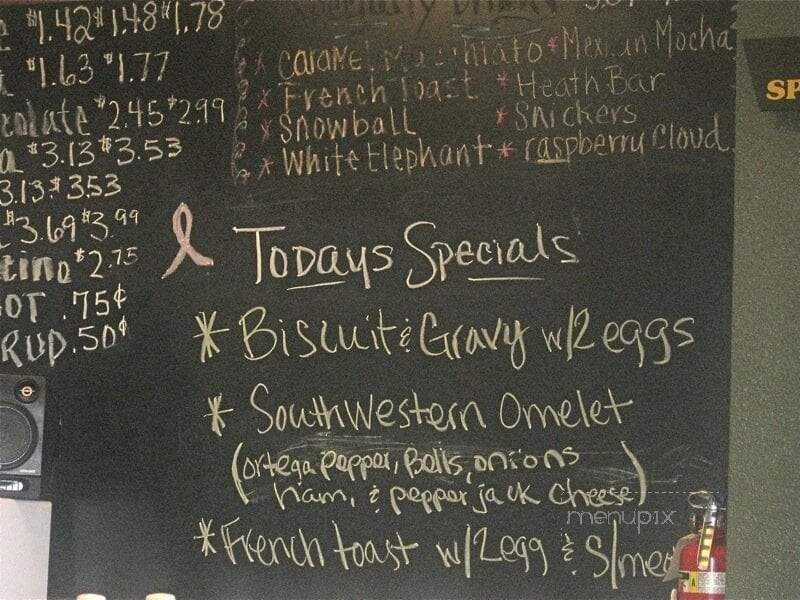 Specialty Drinks
$1.42 $1.48 $1.78
$1.63 $1.77
colate $2.45 $2.99
a $3.13 $3.53
3.13 $3.53
$3.69 $3.99
tino $2.75
OT .75¢
RUP .50¢
* Caramel Macchiato * Mexican Mocha
* French Toast * Heath Bar
* Snowball * Snickers
* White Elephant * raspberry Cloud
SP
Todays Specials
* Biscuit & Gravy w/2 eggs
* Southwestern Omelet
(ortega pepper, Bells, onions
ham, & pepper jack cheese)
* French toast w/2egg & S/mea
menupix